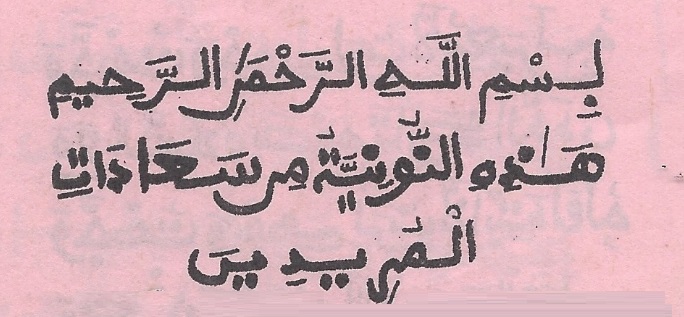 بِسْمِ اللَّهِ الرَّحْمَٰنِ الرَّحِيمِ
هَٰذِهِ النُّونِيَّةُ مِن سَعَادَاتِ
الْمُرِيدِينَ